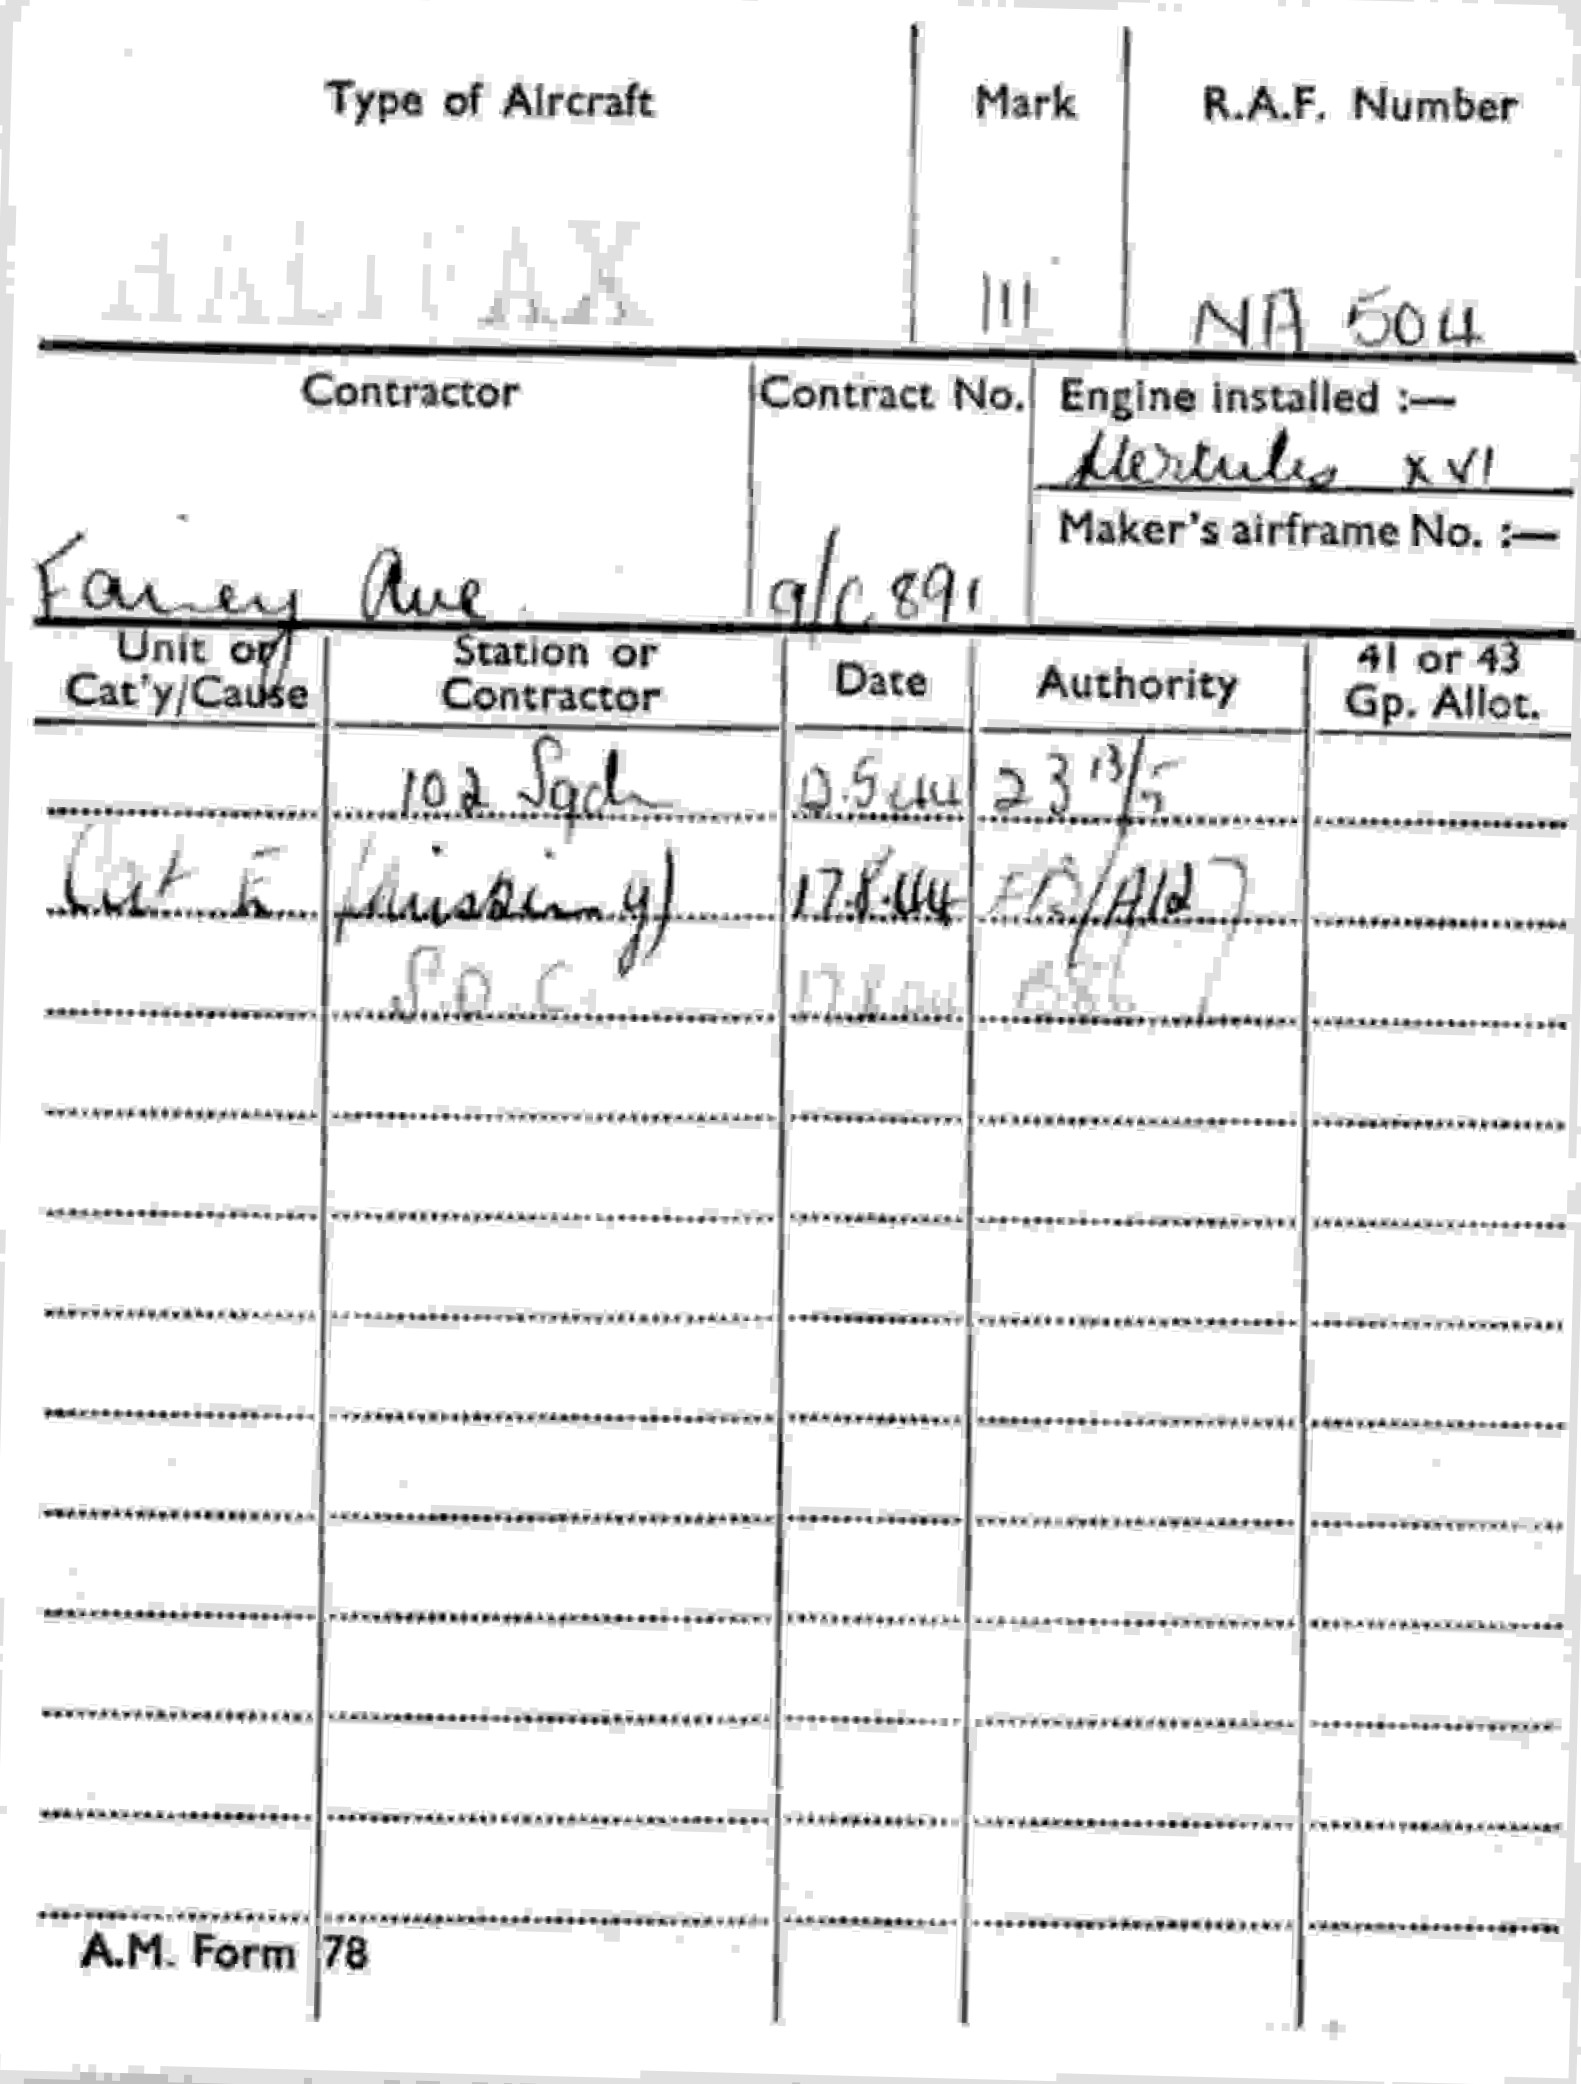 Type of Aircraft Mark R.A.F. Number
HALIFAX III NA 504
Contractor Contract No. Engine installed :—
Hercules XVI
Maker's airframe No. :—
Fairey Ave a/c 891
Unit or Cat'y/Cause Station or Contractor Date Authority 41 or 43 Gp. Allot.
102 Sqdn 12.5.44 23 13/5
Cat E (missing) 17.8.44 FB/A12
S.O.C. 17.8.44
A.M. Form 78